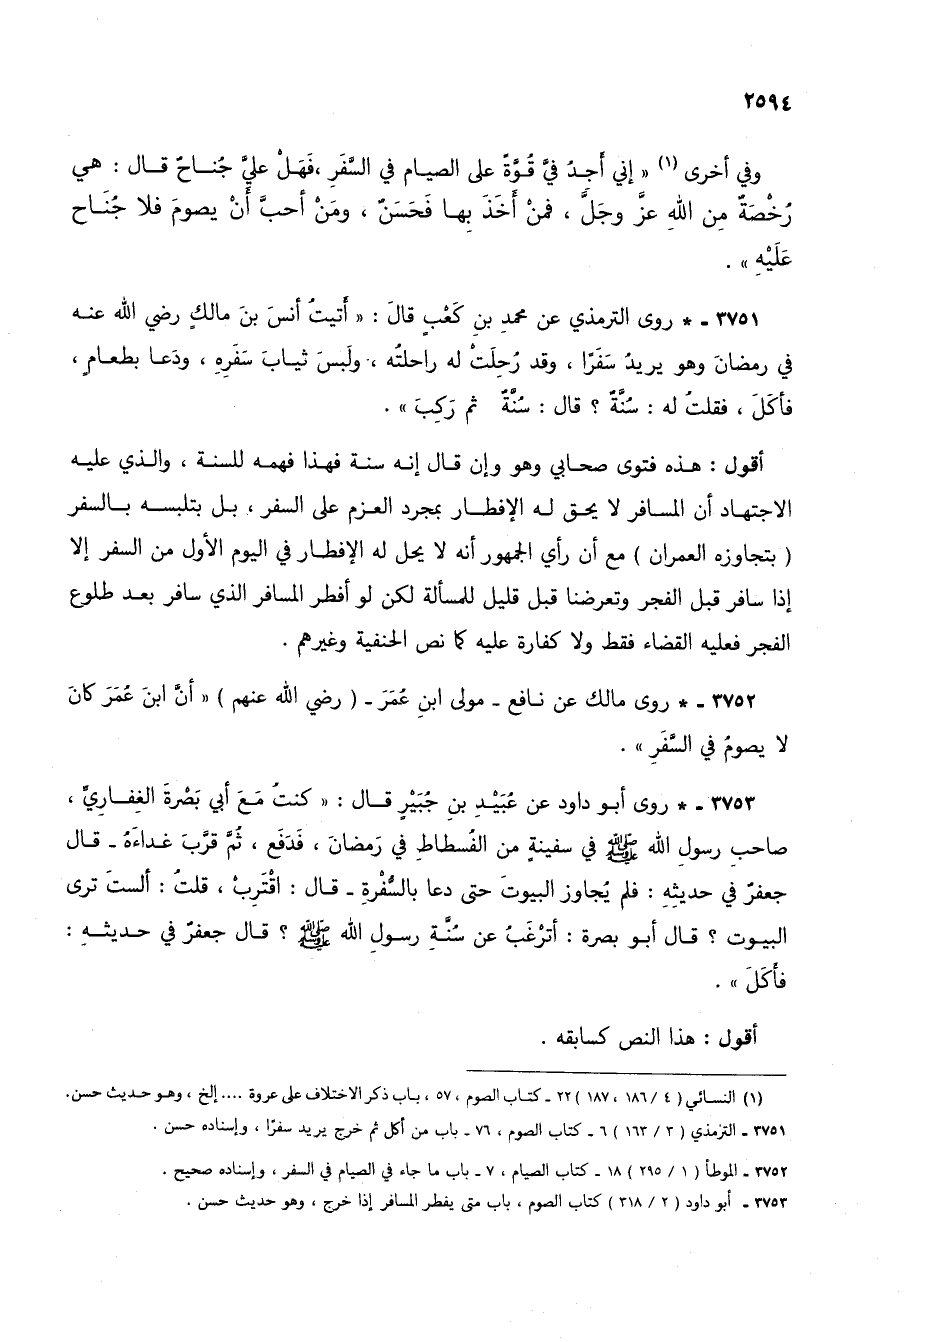 ٢٥٩٤
وفي أخرى (١) « إني أَجِدُ فيَّ قُوَّةً على الصيام في السَّفَرِ ،فَهَلْ عليَّ جُناحٌ قال : هي
رُخْصَةٌ مِن اللهِ عزَّ وجَلَّ ، فمنْ أَخَذَ بها فَحَسَنٌ ، ومَنْ أحبَّ أَنْ يصومَ فلا جُنَاح
عَلَيْهِ » .
٣٧٥١ - * روى الترمذي عن محمدِ بنِ كَعْبٍ قالَ : « أَتيتُ أنسَ بنَ مالكٍ رضي الله عنه
في رمضانَ وهو يريدُ سَفَرًا ، وقد رُحِلَتْ له راحلتُه ، ولَبسَ ثيابَ سَفَرِه ، ودَعا بطعامٍ ،
فأكَلَ ، فقلتُ له : سُنَّةٌ ؟ قال : سُنَّةٌ ثم رَكِبَ » .
أقول : هذه فتوى صحابي وهو وإن قال إنه سنة فهذا فهمه للسنة ، والذي عليه
الاجتهاد أن المسافر لا يحق له الإفطار بمجرد العزم على السفر ، بل بتلبسه بالسفر
( بتجاوزه العمران ) مع أن رأي الجمهور أنه لا يحل له الإفطار في اليوم الأول من السفر إلا
إذا سافر قبل الفجر وتعرضنا قبل قليل للمسألة لكن لو أفطر المسافر الذي سافر بعد طلوع
الفجر فعليه القضاء فقط ولا كفارة عليه كما نص الحنفية وغيرهم .
٣٧٥٢ - * روى مالك عن نافع - مولى ابنِ عُمَرَ - ( رضي الله عنهم ) « أنَّ ابنَ عُمَرَ كانَ
لا يصومُ في السَّفَرِ » .
٣٧٥٣ - * روى أبو داود عن عُبَيْدِ بنِ جُبَيْرٍ قال : « كنتُ مَعَ أبي بَصْرةَ الغِفاريِّ ،
صاحبِ رسولِ الله ﷺ في سفينةٍ من الفُسطاطِ في رَمضانَ ، فَدَفَع ، ثُمَّ قرَّبَ غداءَهُ - قال
جعفرٌ في حديثِهِ : فلم يُجاوز البيوتَ حتى دعا بالسُّفْرةِ - قال : اقْتَرِبْ ، قلتُ : ألستَ ترى
البيوت ؟ قال أبو بصرة : أترْغَبُ عن سُنَّةِ رسولِ الله ﷺ ؟ قال جعفرٌ في حديثهِ :
فأَكَلَ » .
أقول : هذا النص كسابقه .
(١) النسائي ( ٤ / ١٨٦ ، ١٨٧ ) ٢٢ - كتاب الصوم ، ٥٧ ، باب ذكر الاختلاف على عروة .... إلخ ، وهو حديث حسن.
٣٧٥١ - الترمذي ( ٣ / ١٦٣ ) ٦ - كتاب الصوم ، ٧٦ - باب من أكل ثم خرج يريد سفرًا ، وإسناده حسن .
٣٧٥٢ - الموطأ ( ١ / ٢٩٥ ) ١٨ - كتاب الصيام ، ٧ - باب ما جاء في الصيام في السفر ، وإسناده صحيح .
٣٧٥٣ - أبو داود ( ٢ / ٣١٨ ) كتاب الصوم ، باب متى يفطر المسافر إذا خرج ، وهو حديث حسن .